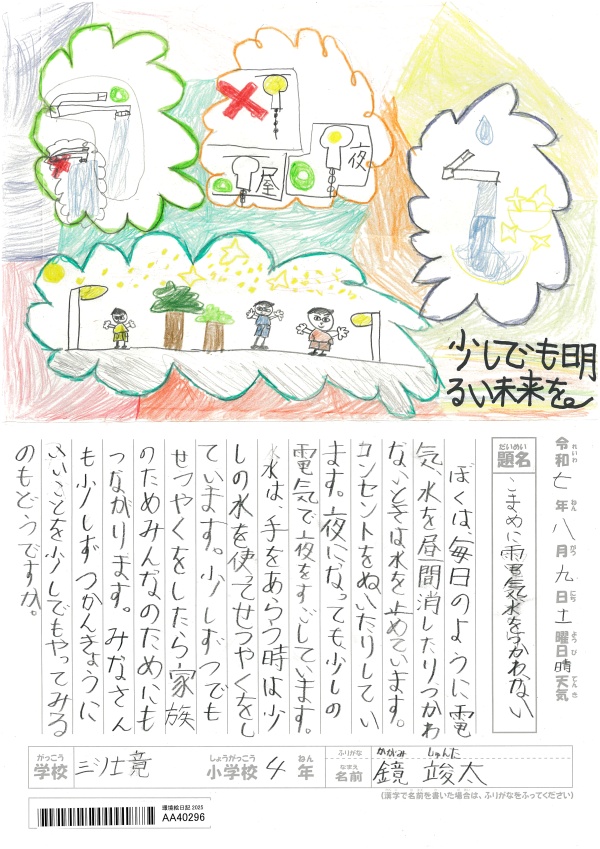 昼
夜
少しでも明
るい未来を。
令和七年八月九日土曜日晴天気
れいわ ねん がつ にち ようび てんき
だいめい
題名
こまめに電気水をつかわない
ぼくは、毎日のように電
気、水を昼間消したり、つかわ
ないときは水を止めています。
コンセントをぬいたりしてい
ます。夜になっても、少しの
電気で夜をすごしています。
水は、手をあらう時は少
しの水を使ってせつやくをし
ています。少しずつでも
せつやくをしたら、家族
のためみんなのためにも
つながります。みなさん
も少しずつかんきょうに
いいことを少しでもやってみる
のもどうですか。
がっこう しょうがっこう ねん
学校 三ツ境 小学校 4 年
ふりがな かがみ しゅんた
なまえ
名前 鏡 竣太
(漢字で名前を書いた場合は、ふりがなをふってください)
環境絵日記 2025
AA40296